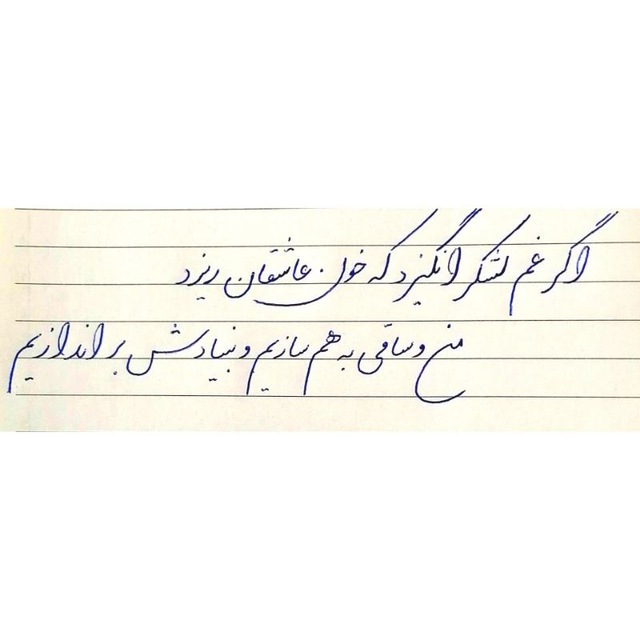 اگر غم لشکر انگیزد که خون عاشقان ریزد
من و ساقی به هم سازیم و بنیادش براندازیم